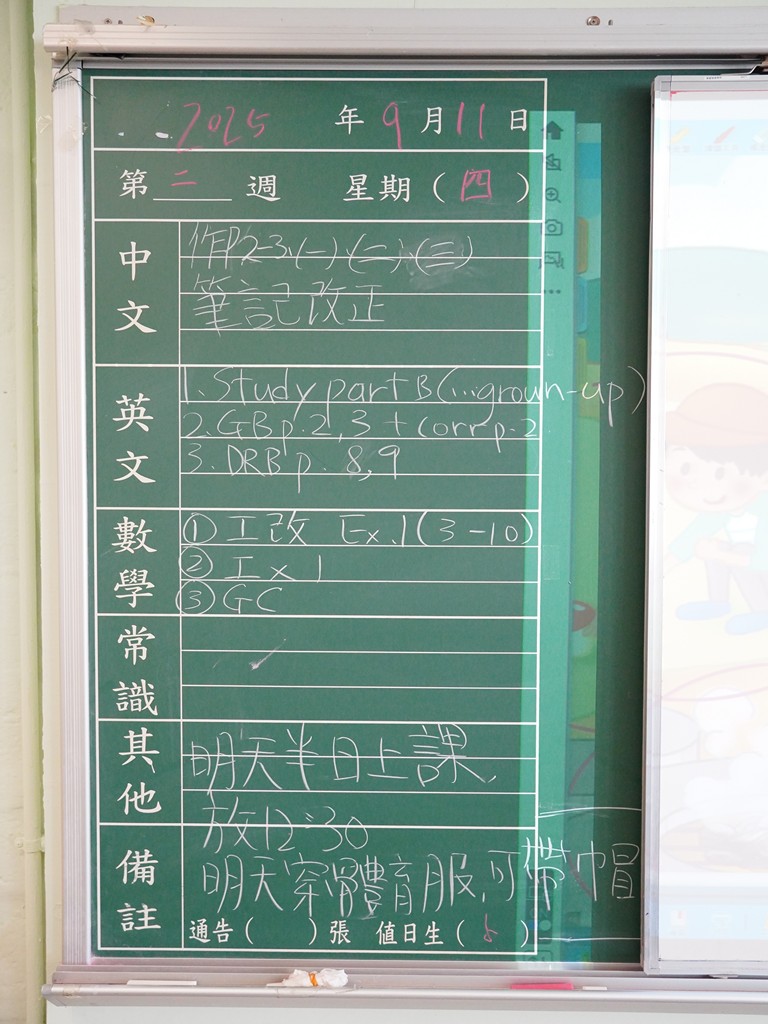 2025 年 9 月 11 日
第 二 週 星期（四）
中文
作P2-3、(一)、(二)、(三)
筆記改正
英文
1. Study part B (...grown-up)
2. GB p.2,3 + corr p.2
3. DRB p. 8,9
數學
① 工改 Ex.1 (3-10)
② 工 x 1
③ GC
常識
其他
明天半日上課,
放12:30
備註
明天穿體育服,可帶巾冒
通告（ ）張 值日生（ ）